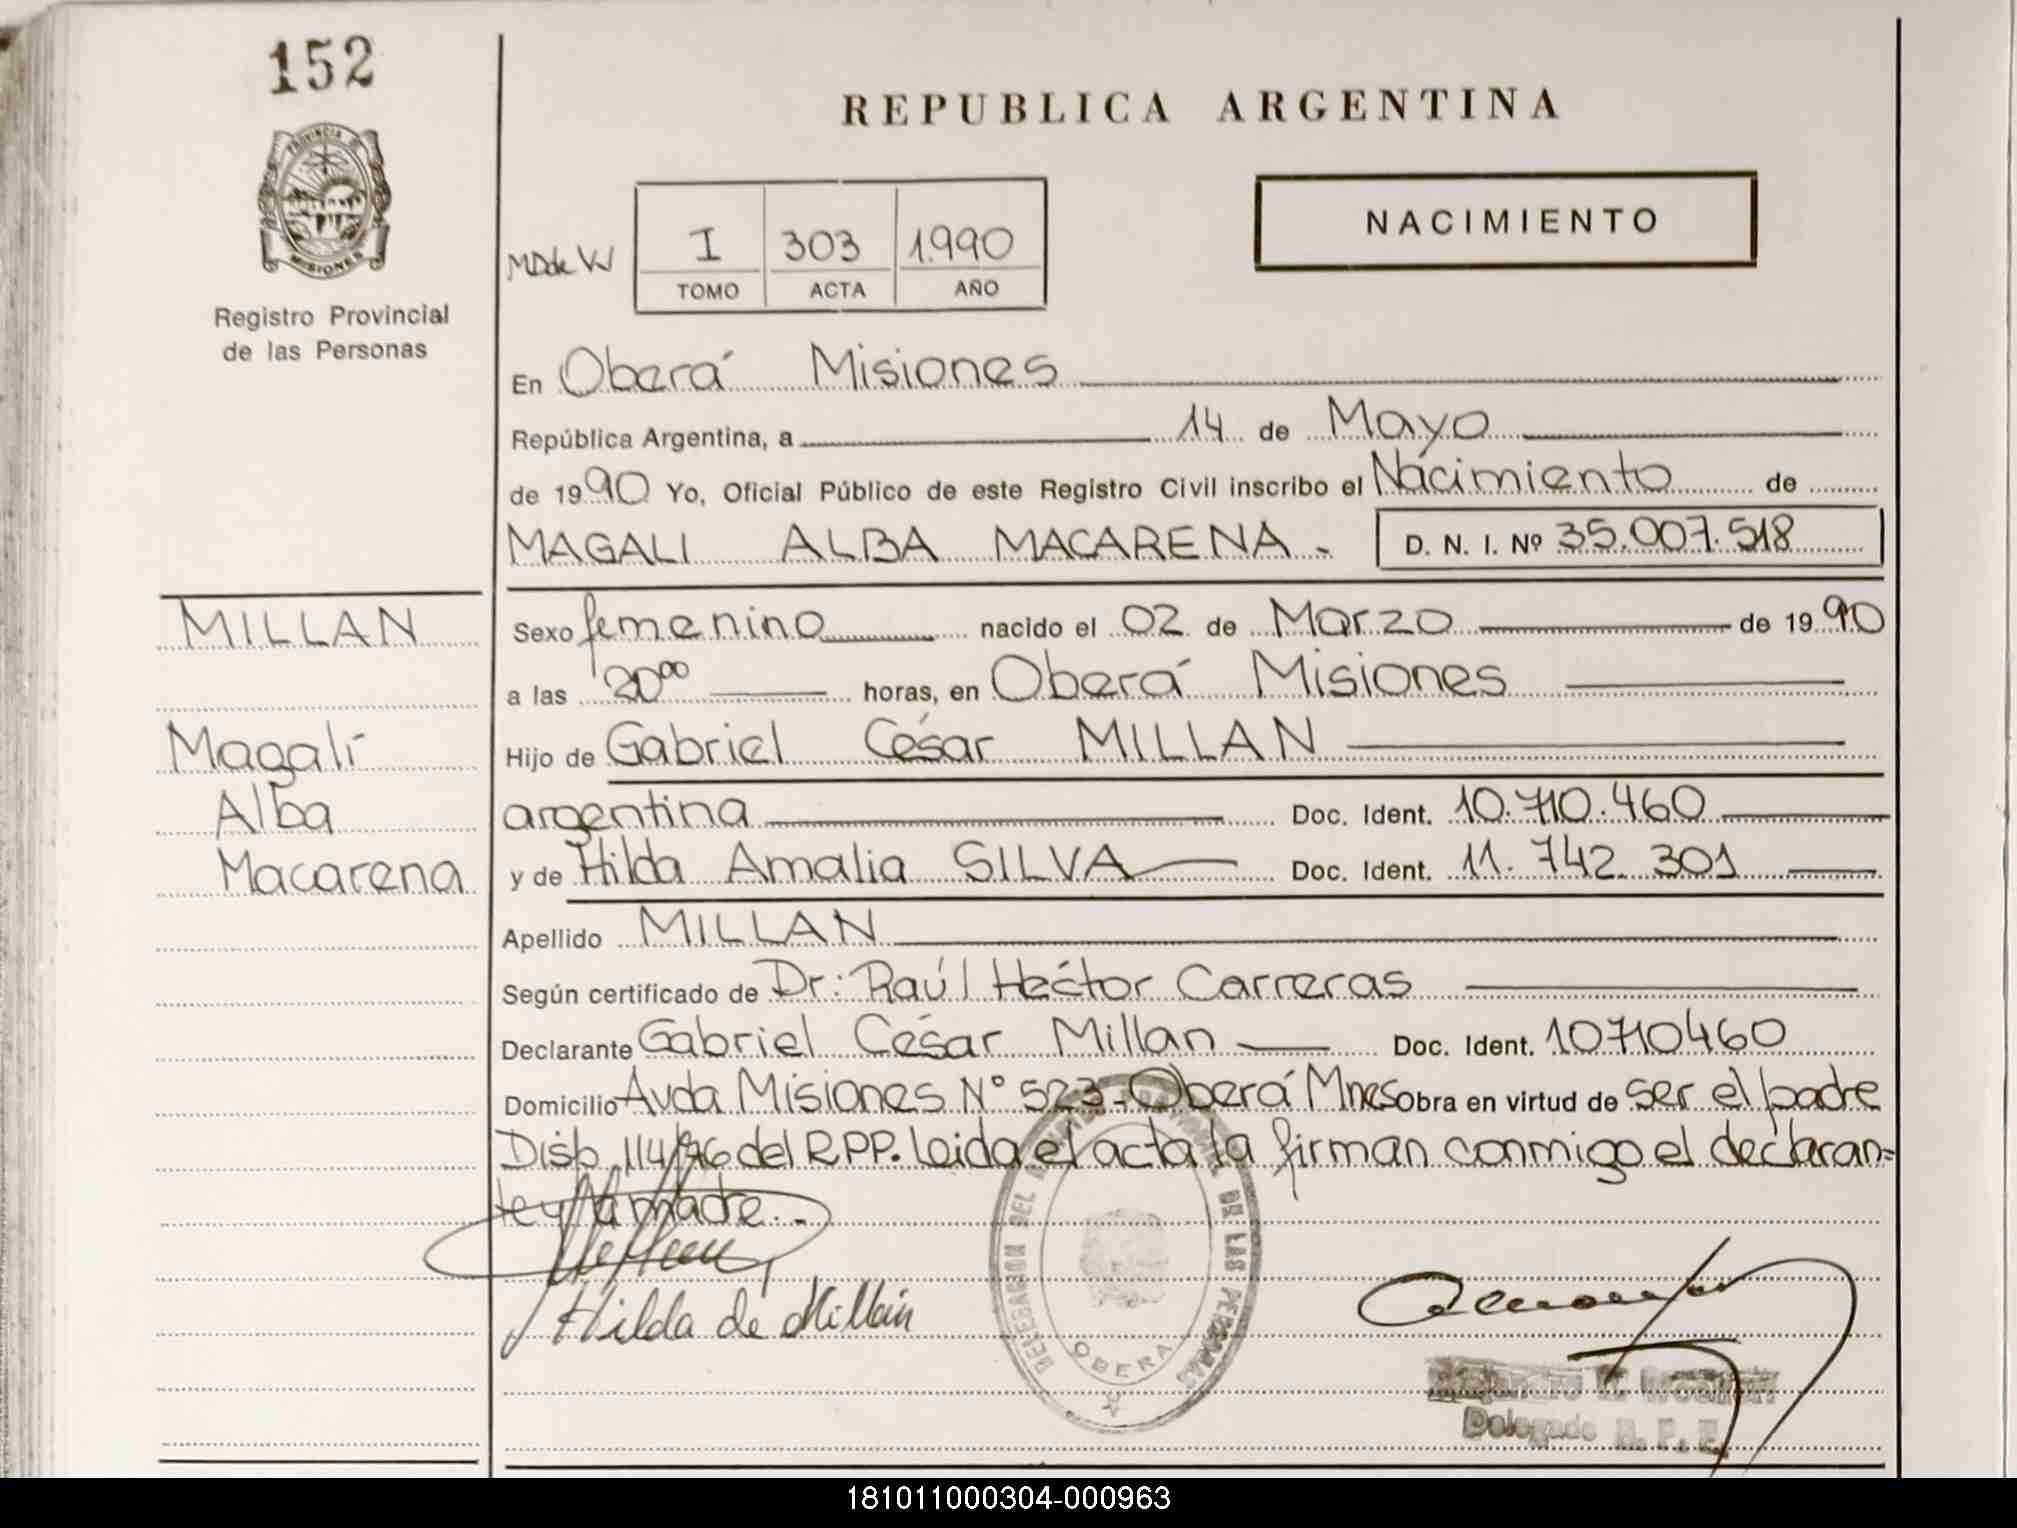 152
REPUBLICA ARGENTINA
PROVINCIA DE
MISIONES
Registro Provincial
de las Personas
NACIMIENTO
I 303 1.990
TOMO ACTA AÑO
En Oberá Misiones
República Argentina, a 14 de Mayo
de 1990 Yo, Oficial Público de este Registro Civil inscribo el Nacimiento de
MAGALI ALBA MACARENA.- D. N. I. Nº 35.007.518
MILLAN
Magalí
Alba
Macarena
Sexo femenino nacido el 02 de Marzo de 1990
a las 20⁰⁰ horas, en Oberá Misiones
Hijo de Gabriel César MILLAN
argentina Doc. Ident. 10.710.460
y de Hilda Amalia SILVA Doc. Ident. 11.742.301
Apellido MILLAN
Según certificado de Dr: Raúl Héctor Carreras
Declarante Gabriel César Millan Doc. Ident. 10710460
Domicilio Avda Misiones Nº 523-Oberá Mnes Obra en virtud de ser el padre
Disp. 114/76 del R.P.P. Leida el acta la firman conmigo el declaran=
te y la madre.-
Hilda de Millán
DELEGACION DEL DE LAS PERSONAS
OBERA
Delegado R. P. P.
181011000304-000963